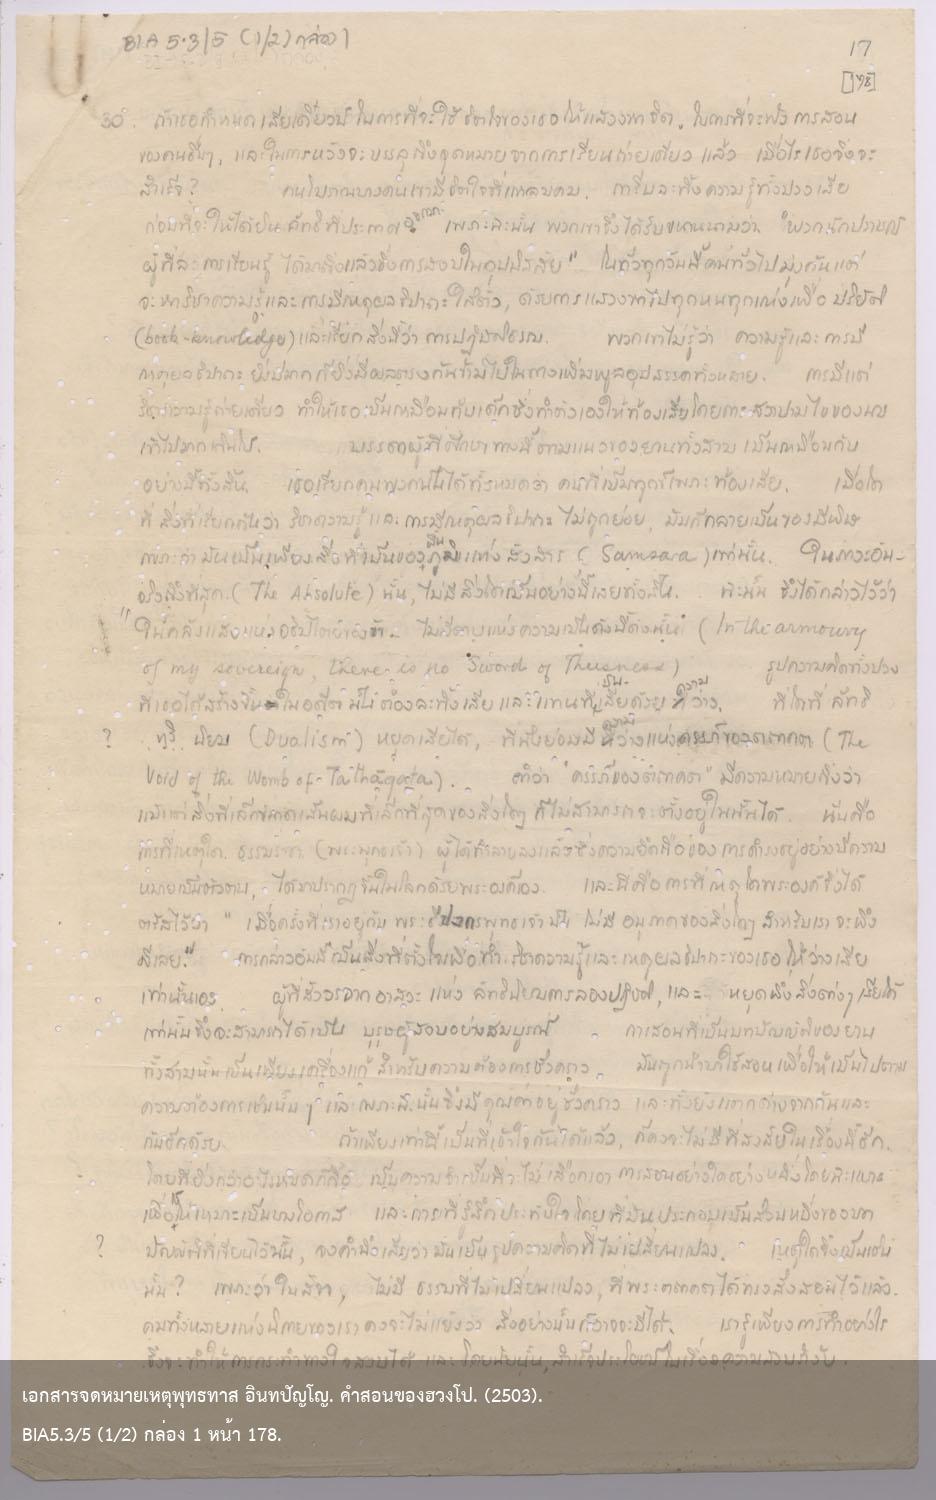 BIA 5.3/5 (1/2) กล่อง 1
17
[178]
30. ถ้าเธอกำหนดเสียเดี๋ยวนี้ ในการที่จะใช้จิตใจของเธอให้แสวงหาจิต, ในการที่จะฟังการสอน
ของคนอื่นๆ, และในการหวังจะบรรลุถึงจุดหมายจากการเรียนถ่ายเดียว แล้ว เมื่อไรเธอจึงจะ
สำเร็จ? คนโบราณบางคนเขามีจิตใจที่แหลมคม, การีบละทิ้งความรู้ทั้งปวงเสีย
ก่อนที่จะให้ได้ยินลัทธิที่ประกาศออกมา เพราะฉะนั้น พวกเขาจึงได้รับขนานนามว่า "พวกนักปราชญ์
ผู้ที่ละการเรียนรู้ ได้มาถึงแล้วซึ่งการสงบในอุปนิสสัย" ในทั่วทุกวันนี้คนทั่วไปมุ่งกันแต่
จะหาวิชาความรู้และการมีเหตุผลวิปากะใส่ตัว, ด้วยการแสวงหาไปทุกหนทุกแห่งเพื่อ ปริยัติ
(book-knowledge) และเรียกสิ่งนี้ว่า การปฏิบัติธรรม. พวกเขาไม่รู้ว่า ความรู้และการมี
เหตุผลวิปากะ ยิ่งมีมากก็ยิ่งมีผลตรงกันข้ามไปในทางเพิ่มพูลอุปสรรคทั้งหลาย. การมีแต่
วิชาความรู้ถ่ายเดียว ทำให้เธอเป็นเหมือนกับเด็กซึ่งทำตัวเองให้ท้องเสียโดยการสวาปามไขของนม
เข้าไปมากเกินไป. บรรดาผู้ที่ศึกษาทางนี้ตามแนวของยานทั้งสาม เป็นเหมือนกับ
อย่างนี้ทั้งสิ้น. เธอเรียกคนพวกนี้ได้ทั้งหมดว่า คนที่เป็นทุกข์เพราะท้องเสีย. เมื่อใด
ที่ สิ่งที่เรียกกันว่า วิชาความรู้ และ การมีเหตุผลวิปากะ ไม่ถูกย่อย, มันก็กลายเป็นของมีพิษ
เพราะว่ามันเป็นเพียงสิ่งที่เป็นของภูมิแห่งสังสาร (Samsara) เท่านั้น. ในภาวะอัน-
จริงถึงที่สุด (The Absolute) นั้น, ไม่มีสิ่งใดเป็นอย่างนี้เลยทั้งสิ้น. ฉะนั้น จึงได้กล่าวไว้ว่า
"ในคลังแสงแห่งอธิปไตยของข้า ไม่มีดาบแห่งความเป็นดังนี้ดังนั้น" (In the armoury
of my sovereign, there is no Sword of Thusness) รูปความคิดทั้งปวง
ที่เธอได้สร้างขึ้นในอดีต มันต้องละทิ้งเสีย และแทนที่เสียด้วยความว่าง. ที่ใดที่ ลัทธิ
? ทวินิยม (Dualism) หยุดเสียได้, ที่นั่นย่อมมีความว่างแห่งครรภ์ของตถาคต (The
Void of the Womb of Tathagata). คำว่า "ครรภ์ของตถาคต" มีความหมายถึงว่า
แม้แต่สิ่งที่เล็กขนาดเส้นผมที่เล็กที่สุดของสิ่งใดๆ ก็ไม่สามารถจะตั้งอยู่ในนั้นได้. นั่นคือ
การที่เหตุใด ธรรมราชา (พระพุทธเจ้า) ผู้ได้ทำลายลงแล้วซึ่งความยึดถือของการดำรงอยู่อย่างมีความ
หมายเป็นตัวตน, ได้มาปรากฏขึ้นในโลกด้วยพระองค์เอง. และนี่คือการที่เหตุใดพระองค์จึงได้
ตรัสไว้ว่า "เมื่อครั้งที่เราอยู่กับ พระทีปังกรพุทธเจ้านั้น ไม่มีอนุภาคของสิ่งใดๆ สำหรับเราจะพึง
มีเลย." การกล่าวอันนี้ เป็นสิ่งที่ตั้งใจเพื่อทำวิชาความรู้และเหตุผลวิปากะของเธอ ให้ว่างเสีย
เท่านั้นเอง. ผู้ที่สำรวจจากอาสวะ แห่ง ลัทธินิยมการลองปฏิบัติ, และ หยุดพึ่งสิ่งต่างๆ เสียได้
เท่านั้นจึงจะสามารถได้เป็น บุรุษผู้สงบอย่างสมบูรณ์ การสอนที่เป็นบทบัญญัติของยาน
ทั้งสามนั้นเป็นเพียงเครื่องแก้ สำหรับความต้องการชั่วคราว. มันถูกนำมาใช้สอนเพื่อให้เป็นไปตาม
ความต้องการเช่นนั้นๆ และเพราะฉะนั้นจึงมีคุณค่าอยู่ชั่วคราว และทั้งยังแตกต่างจากกันและ
กันอีกด้วย. ถ้าเพียงเท่านี้เป็นที่เข้าใจกันได้แล้ว, ก็คงจะไม่มีที่สงสัยในเรื่องนี้อีก.
โดยที่ยิ่งกว่าอะไรหมดก็คือ เป็นความจำเป็นที่จะไม่เลือกเอาการสอนอย่างใดอย่างหนึ่งโดยเฉพาะ
เพื่อให้เหมาะเป็นบางโอกาส และการที่รู้สึกประทับใจโดยที่มันประกอบเป็นส่วนหนึ่งของบท
? บัญญัติที่เขียนไว้นั้น, จงคำนึงเสียว่ามันเป็นรูปความคิดที่ไม่เปลี่ยนแปลง. เหตุใดจึงเป็นเช่น
นั้น? เพราะว่าในสัจจะ, ไม่มี ธรรมที่ไม่เปลี่ยนแปลง, ที่พระตถาคตได้ทรงสั่งสอนไว้แล้ว.
คนทั้งหลายแห่งนิกายของเราคงจะไม่แย้งว่า สิ่งอย่างนั้นก็อาจจะมีได้. เรารู้เพียงการทำอย่างไร
จึงจะทำให้การกระทำทางใจสงบได้ และโดยนัยนั้น, สำเร็จประโยชน์ในเรื่องความสงบรำงับ.
เอกสารจดหมายเหตุพุทธทาส อินทปัญโญ. คำสอนของฮวงโป. (2503).
BIA5.3/5 (1/2) กล่อง 1 หน้า 178.